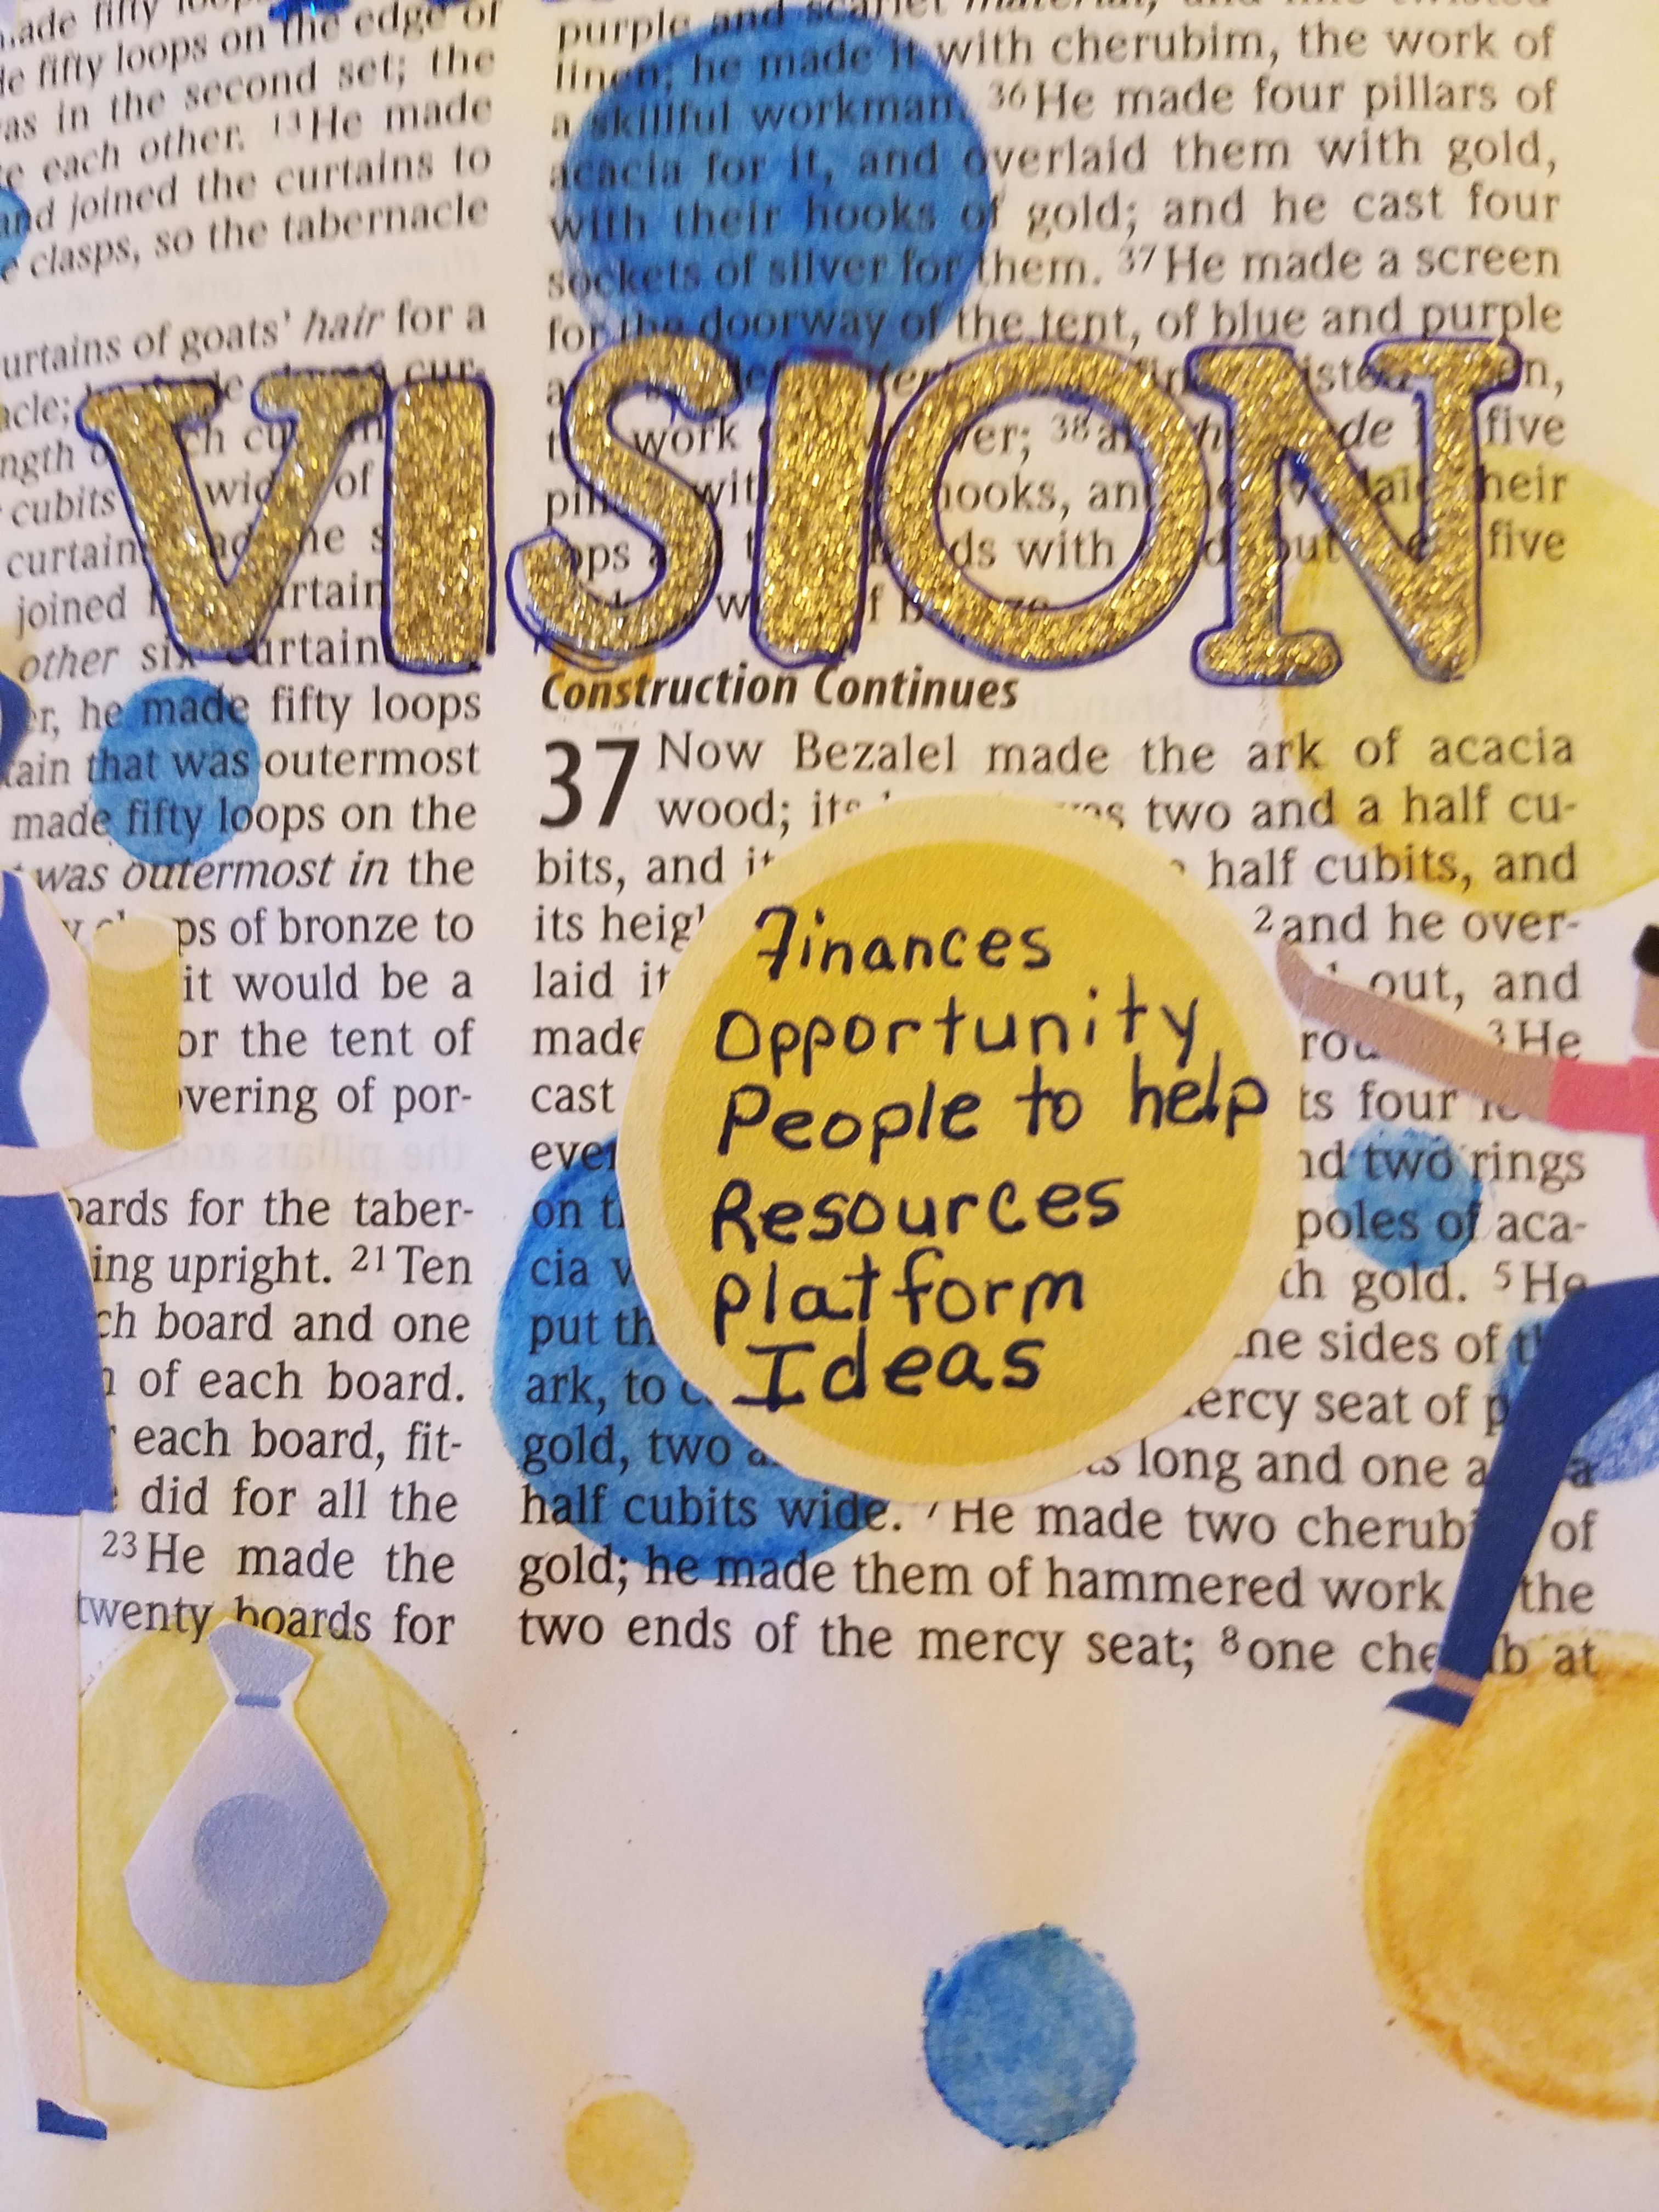 made fifty
fifty loops on the edge of
in the second set; the
each other. 13 He made
and joined the curtains to
clasps, so the tabernacle
curtains of goats' hair for a
cubits wide of
curtain
joined
other six curtain
he made fifty loops
that was outermost
made fifty loops on the
was outermost in the
of bronze to
it would be a
or the tent of
overing of por-
boards for the taber-
ing upright. 21 Ten
board and one
of each board.
each board, fit-
did for all the
23 He made the
twenty boards for
purple and scarlet material, and fine twisted
linen; he made it with cherubim, the work of
a skillful workman. 36 He made four pillars of
acacia for it, and overlaid them with gold,
with their hooks of gold; and he cast four
sockets of silver for them. 37 He made a screen
for the doorway of the tent, of blue and purple
work 38 five
hooks, their
with five
VISION
Construction Continues
37 Now Bezalel made the ark of acacia
wood; its two and a half cu-
bits, and half cubits, and
its 2 and he over-
laid out, and
made 3 He
cast four
two rings
on poles of aca-
cia gold. 5 He
put sides of
ark, to mercy seat of
gold, two long and one
half cubits wide. 7 He made two cherubim of
gold; he made them of hammered work the
two ends of the mercy seat; 8 one cherub at
Finances
Opportunity
People to help
Resources
Platform
Ideas